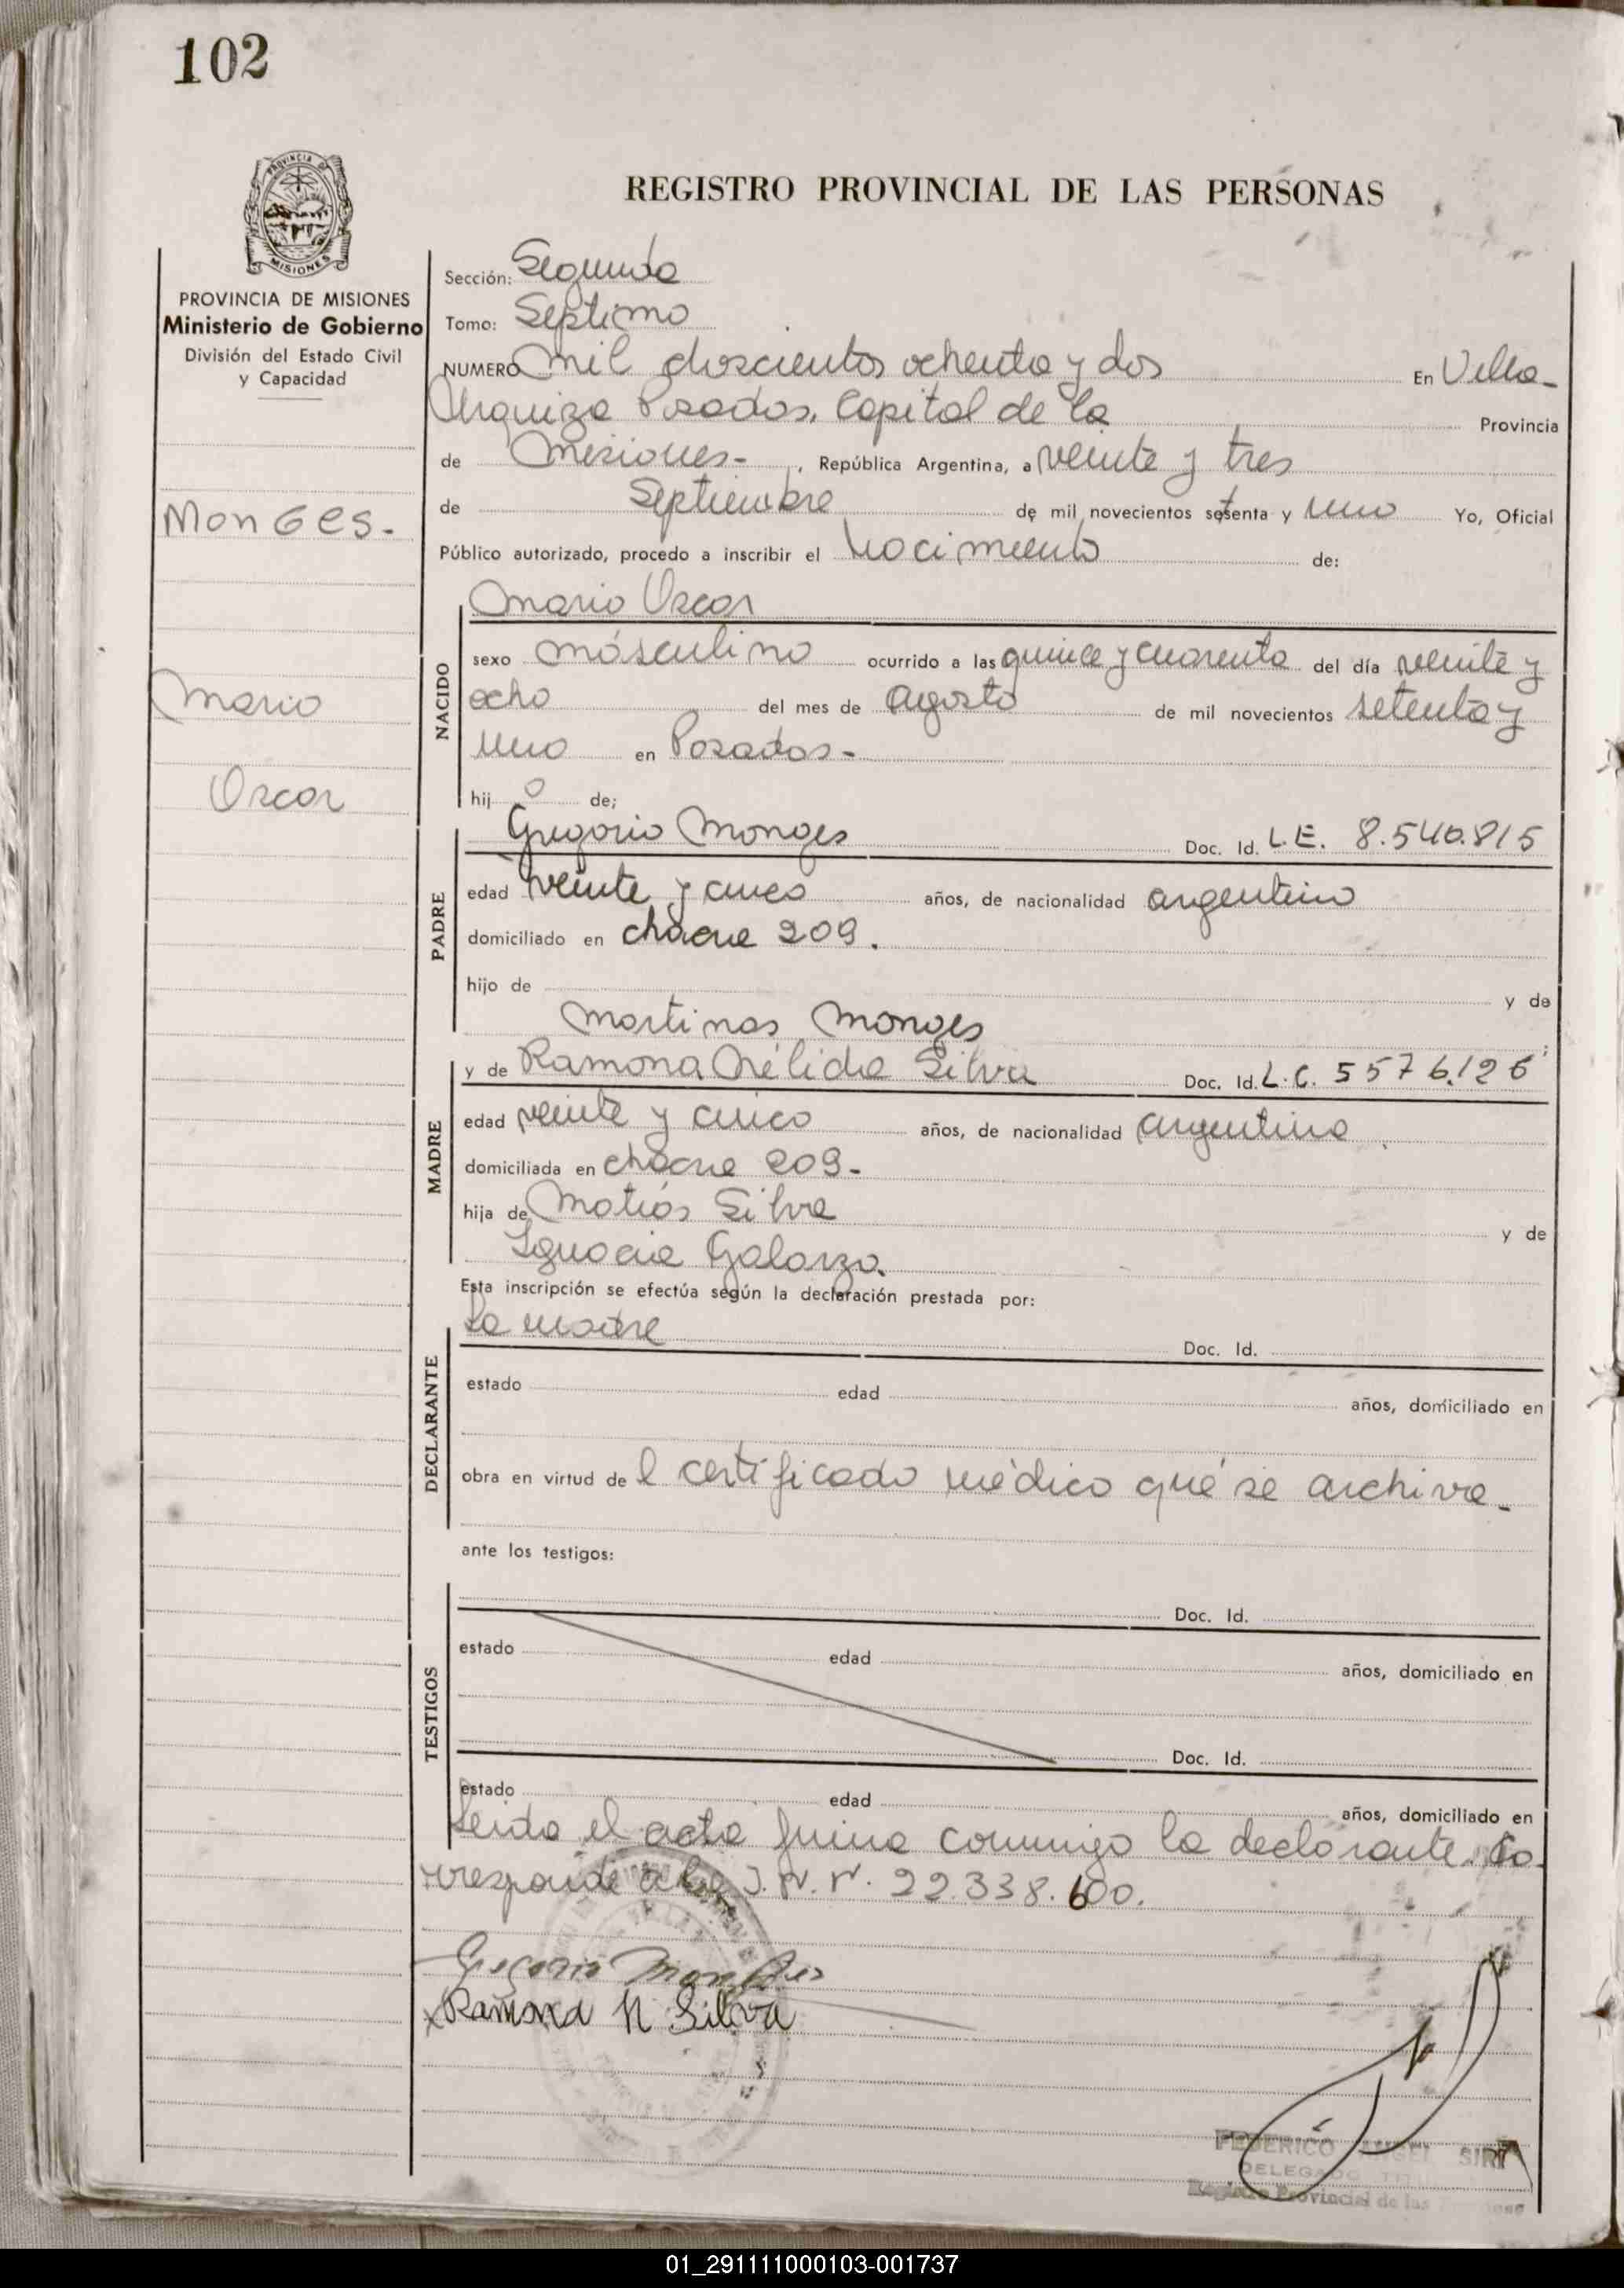 102
PROVINCIA DE
MISIONES
REGISTRO PROVINCIAL DE LAS PERSONAS
PROVINCIA DE MISIONES
Ministerio de Gobierno
División del Estado Civil
y Capacidad
Monges.
Mario
Oscar
Sección: Segunda
Tomo: Septimo
NUMERO Mil doscientos ochenta y dos En Villa-
Urquiza Posadas, Capital de la Provincia
de Misiones- , República Argentina, a veinte y tres
de Septiembre de mil novecientos setenta y uno Yo, Oficial
Público autorizado, procedo a inscribir el nacimiento de:
NACIDO
Mario Oscar
sexo másculino ocurrido a las quince y cuarenta del día veinte y
ocho del mes de agosto de mil novecientos setenta y
uno en Posadas-
hij o de;
PADRE
Gregorio Monges Doc. Id. L.E. 8.540.815
edad veinte y cinco años, de nacionalidad argentino
domiciliado en chacra 209.
hijo de y de
Martinas Monges
MADRE
y de Ramona Nélida Silva Doc. Id. L.C. 5576.126
edad veinte y cinco años, de nacionalidad argentina
domiciliada en chacra 209-
hija de Matías Silva y de
Ignacia Galarza.
Esta inscripción se efectúa según la declaración prestada por:
DECLARANTE
La madre Doc. Id.
estado edad años, domiciliado en
obra en virtud de l certificado médico que se archiva-
ante los testigos:
TESTIGOS
Doc. Id.
estado edad años, domiciliado en
Doc. Id.
estado edad años, domiciliado en
Leida el acta firma conmigo la declarante. Co-
rresponde a la I.N.N. 22.338.600.
Gregorio Monges
x Ramona N Silva
FEDERICO ANGEL SIRA
DELEGADO
Registro Provincial de las
01_291111000103-001737